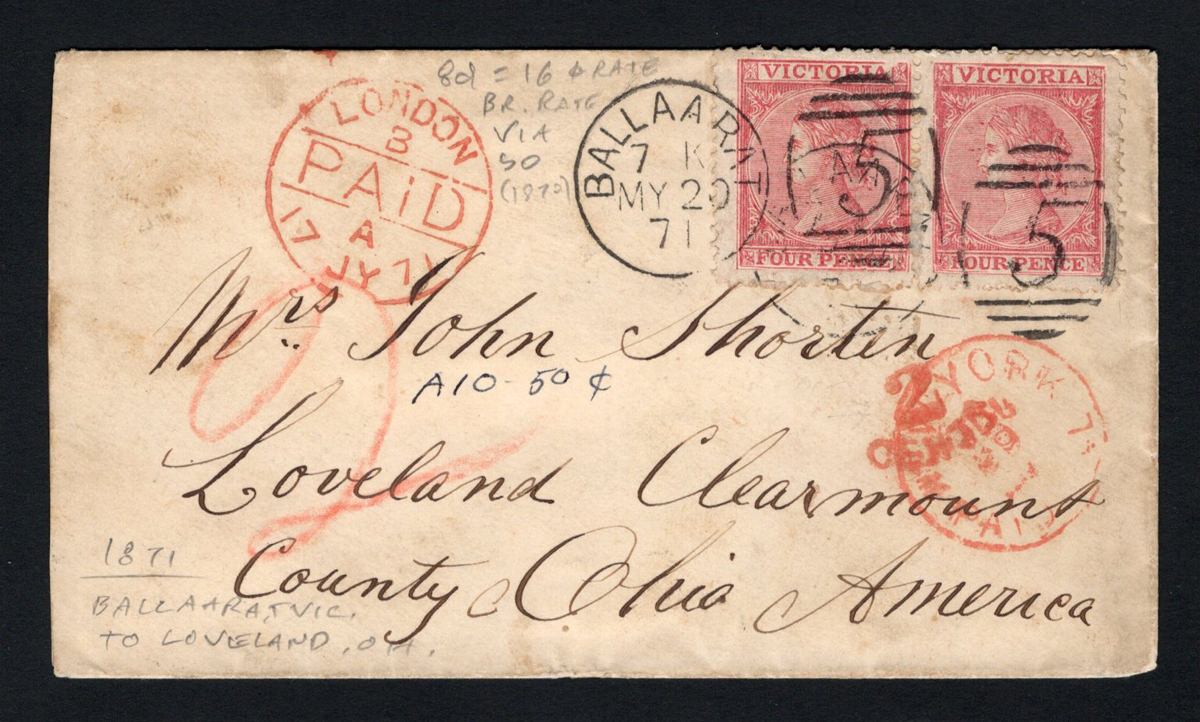 LONDON
B
PAiD
A
17 JY 71
8d = 16 ¢ RATE
BR. RATE
VIA
50
(1870)
BALLAARAT
7 K
MY 20
71
VICTORIA
FOUR PENCE
5
VICTORIA
FOUR PENCE
5
Mrs John Shorten
A10 - 50 ¢
2
Loveland Clearmount
County Ohio America
2
CENTS
YORK
PAID
1871
BALLAARAT, VIC.
TO LOVELAND, OH.